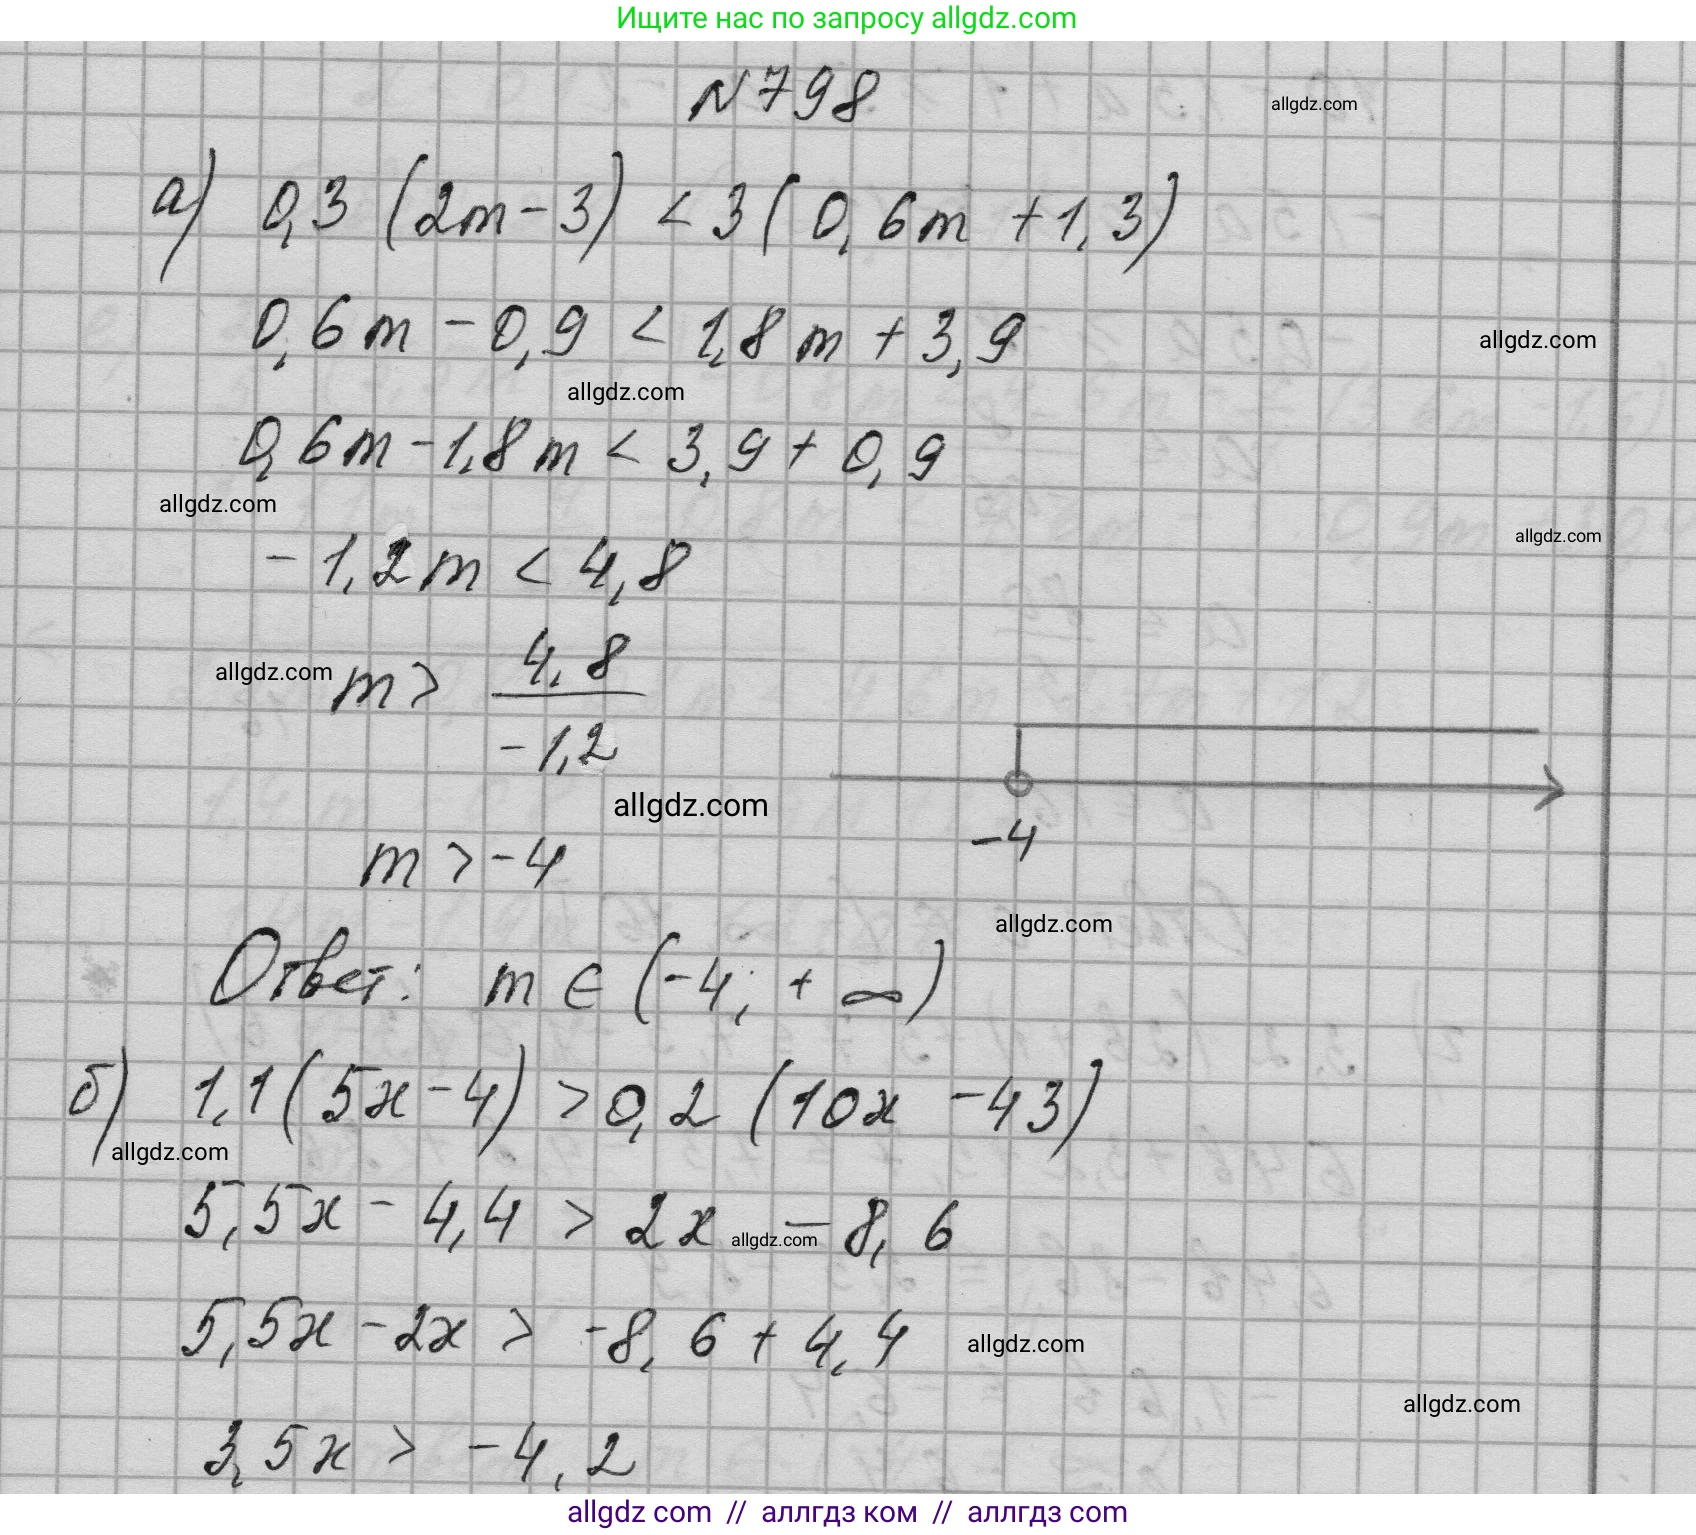 Ищите нас по запросу allgdz.com
N798
allgdz.com
а) 0,3 (2m - 3) < 3 (0,6m + 1,3)
0,6m - 0,9 < 1,8m + 3,9
allgdz.com
allgdz.com
0,6m - 1,8m < 3,9 + 0,9
allgdz.com
allgdz.com
- 1,2m < 4,8
allgdz.com
m > 4,8
- 1,2
allgdz.com
-4
m > -4
allgdz.com
Ответ: m ∈ (-4; + ∞)
б) 1,1 (5x - 4) > 0,2 (10x - 43)
allgdz.com
5,5x - 4,4 > 2x - 8,6
allgdz.com
5,5x - 2x > -8,6 + 4,4
allgdz.com
allgdz.com
3,5x > -4,2
allgdz com // аллгдз ком // allgdz com